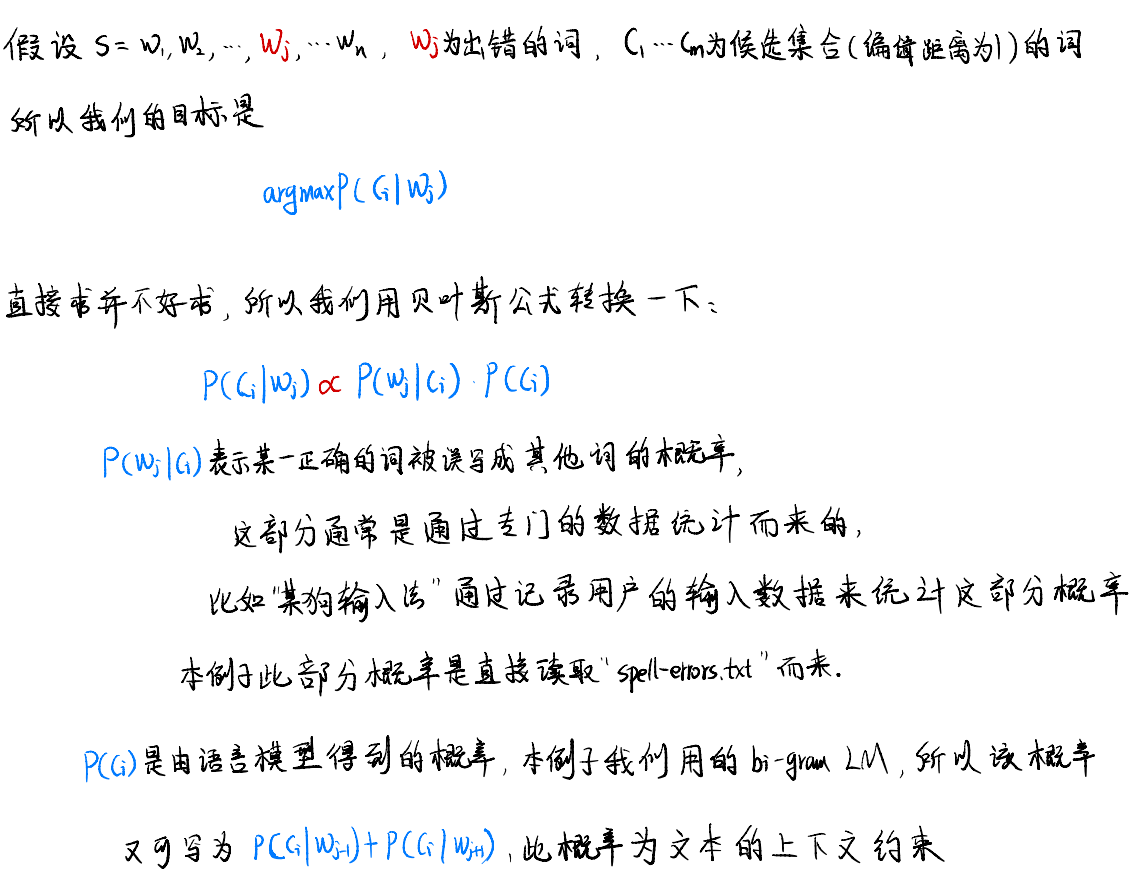 假设 S = w₁, w₂, ⋯, wⱼ, ⋯ wₙ , wⱼ为出错的词 , C₁ ⋯ Cₘ为候选集合(编辑距离为1)的词
所以我们的目标是
argmax P(Cᵢ|Wⱼ)
直接求并不好求, 所以我们用贝叶斯公式转换一下:
P(Cᵢ|Wⱼ) ∝ P(Wⱼ|Cᵢ) · P(Cᵢ)
P(Wⱼ|Cᵢ) 表示某一正确的词被误写成其他词的概率,
这部分通常是通过专门的数据统计而来的,
比如"某狗输入法"通过记录用户的输入数据来统计这部分概率
本例子此部分概率是直接读取"spell-errors.txt"而来.
P(Cᵢ)是由语言模型得到的概率, 本例子我们用的 bi-gram LM, 所以该概率
又可写为 P(Cᵢ|Wⱼ₋₁)+P(Cᵢ|Wⱼ₊₁), 此概率为文本的上下文约束